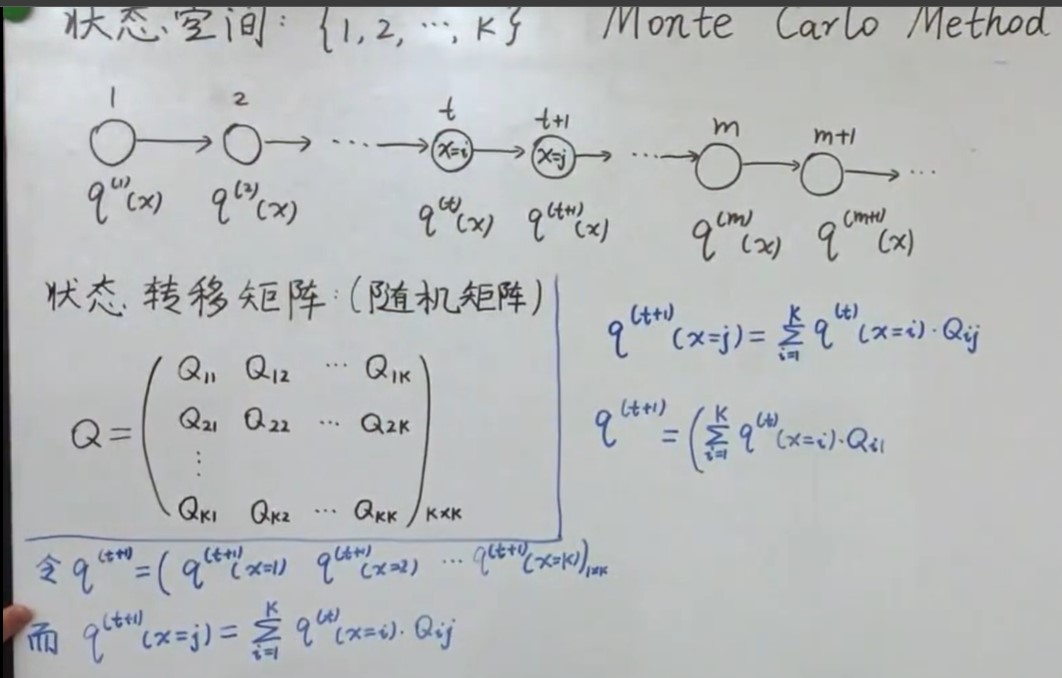 状态空间: {1, 2, ⋯, K} Monte Carlo Method
1 2 t t+1 m m+1
⋯ x=i x=j ⋯ ⋯
q⁽¹⁾(x) q⁽²⁾(x) q⁽ᵗ⁾(x) q⁽ᵗ⁺¹⁾(x) q⁽ᵐ⁾(x) q⁽ᵐ⁺¹⁾(x)
状态转移矩阵:(随机矩阵)
Q = ( Q₁₁ Q₁₂ ⋯ Q₁K
Q₂₁ Q₂₂ ⋯ Q₂K
⋮
QK₁ QK₂ ⋯ QKK )K×K
q⁽ᵗ⁺¹⁾(x=j) = ∑_{i=1}^{K} q⁽ᵗ⁾(x=i)·Qij
q⁽ᵗ⁺¹⁾ = ( ∑_{i=1}^{K} q⁽ᵗ⁾(x=i)·Qi1
令 q⁽ᵗ⁺¹⁾ = ( q⁽ᵗ⁺¹⁾(x=1) q⁽ᵗ⁺¹⁾(x=2) ⋯ q⁽ᵗ⁺¹⁾(x=K) )1×K
而 q⁽ᵗ⁺¹⁾(x=j) = ∑_{i=1}^{K} q⁽ᵗ⁾(x=i)·Qij